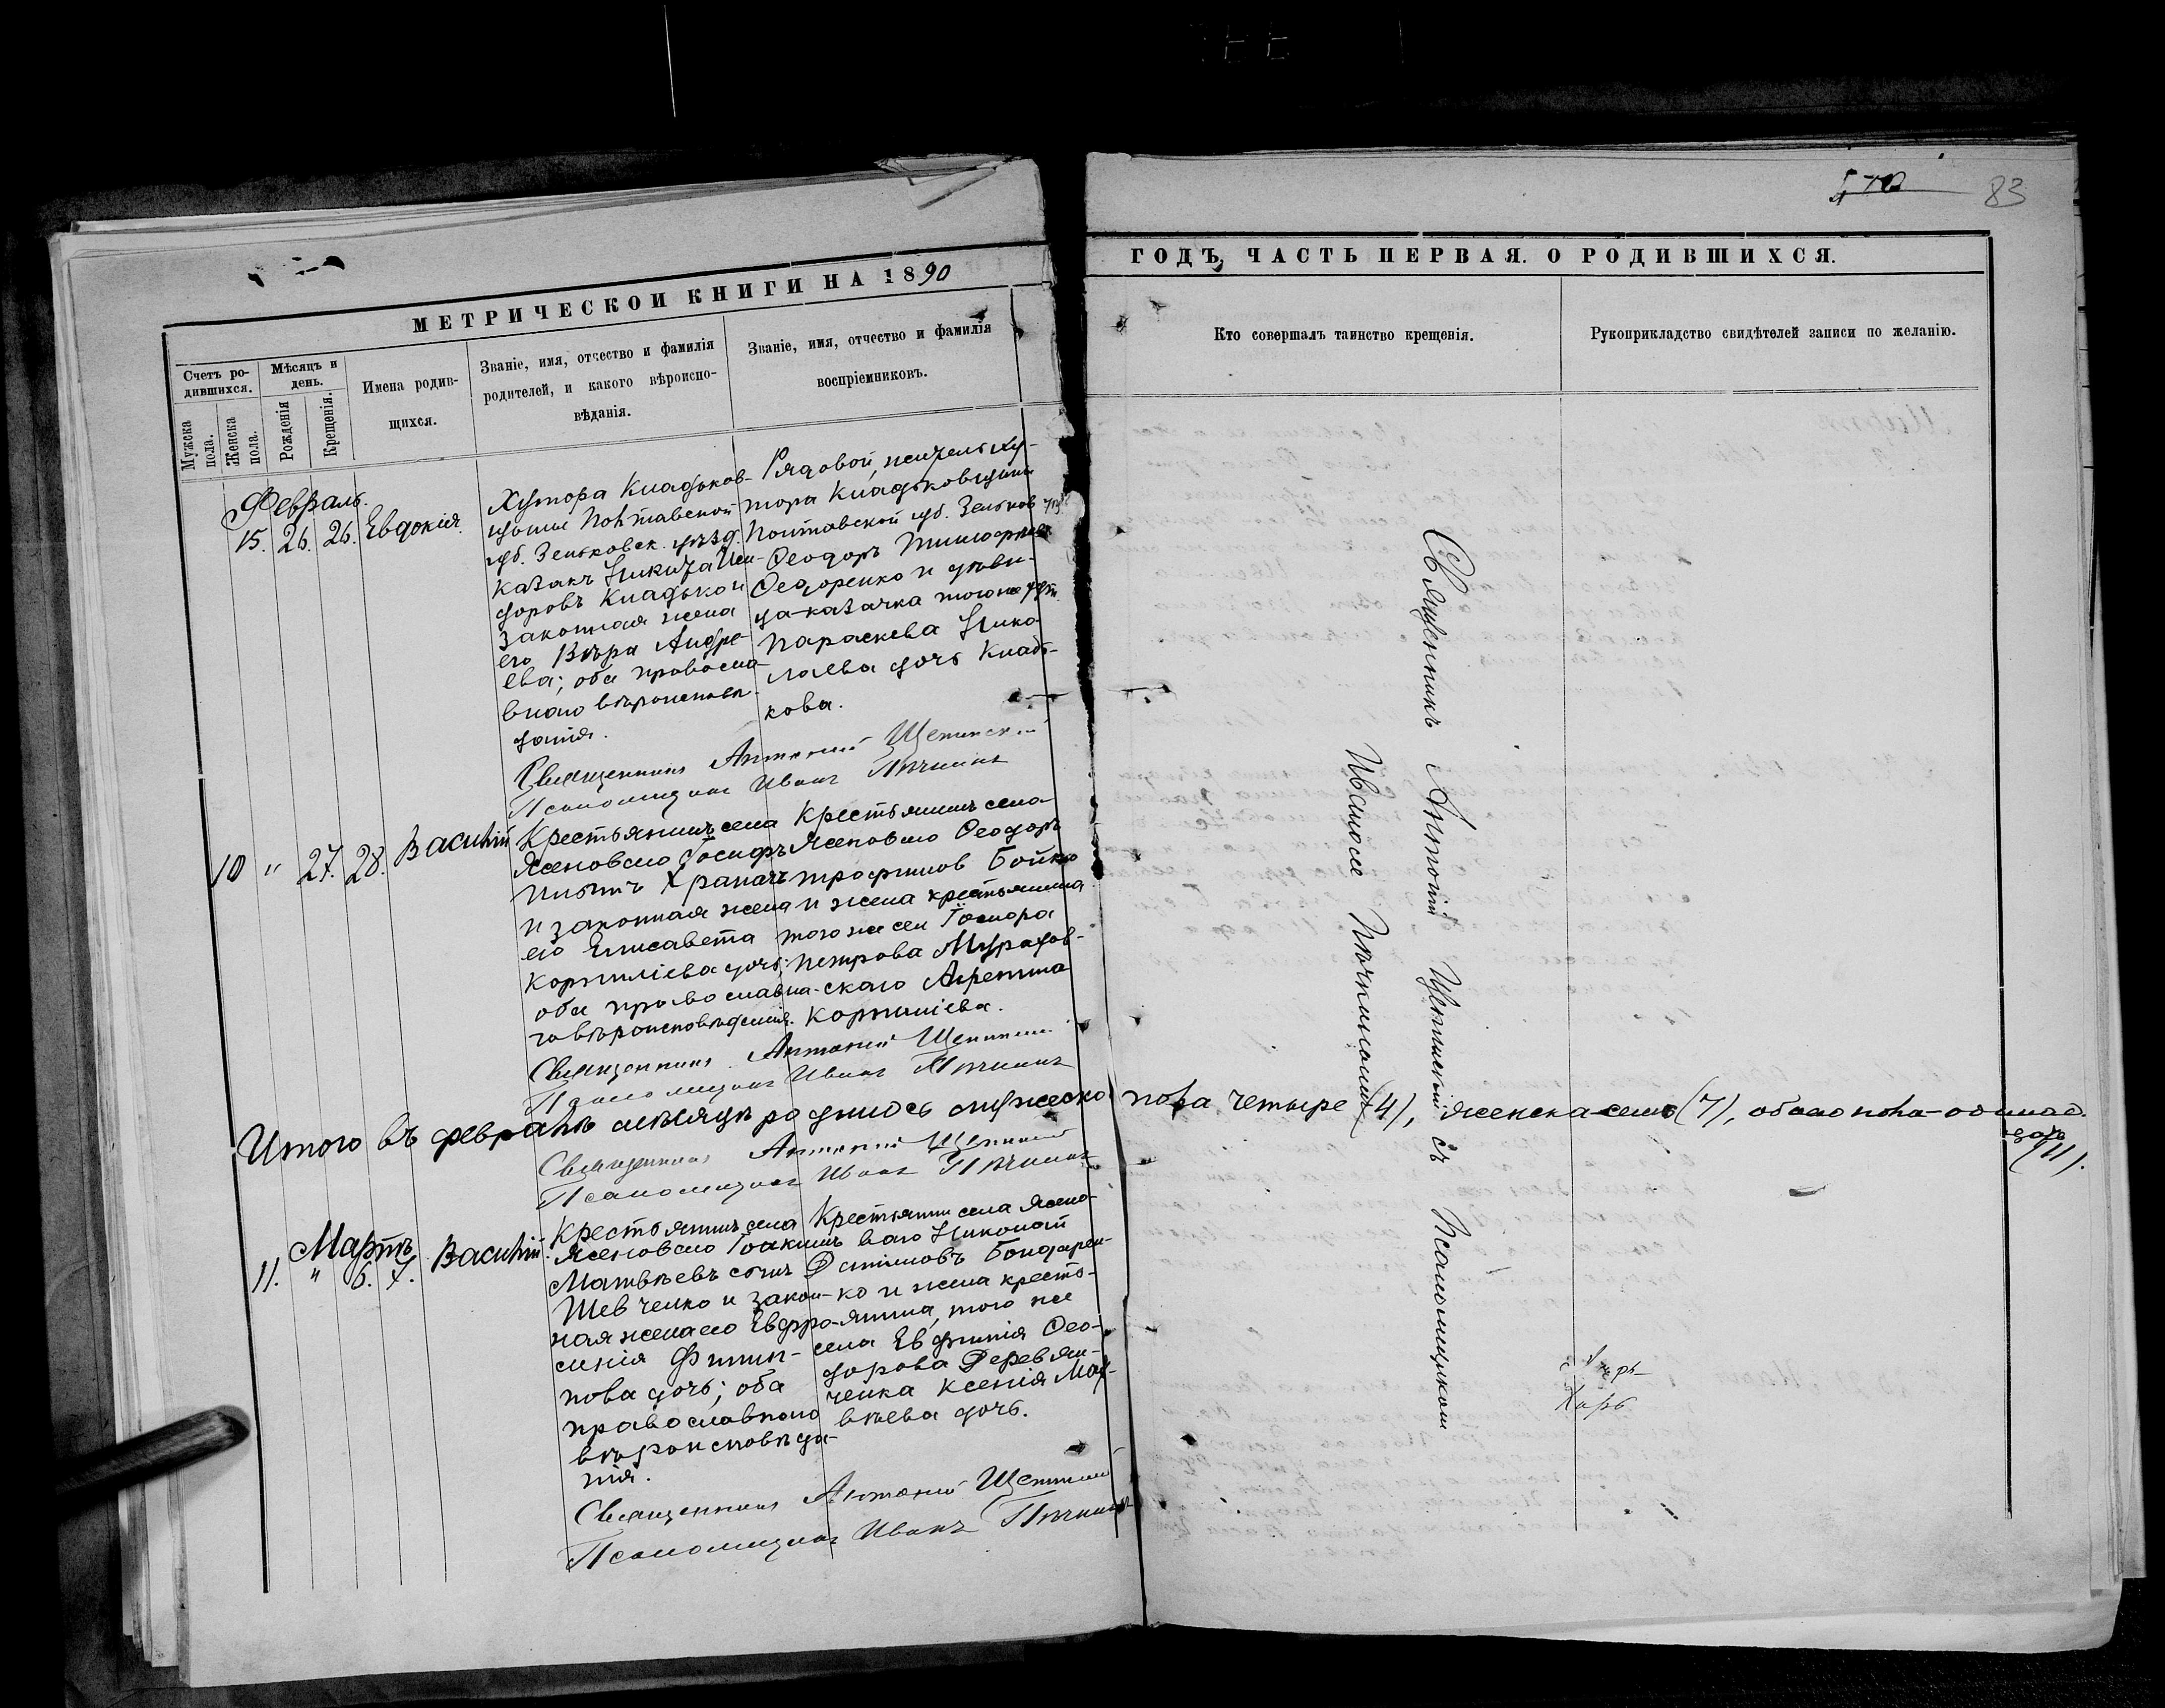 83
МЕТРИЧЕСКОЙ КНИГИ НА 1890
ГОДЪ, ЧАСТЬ ПЕРВАЯ. О РОДИВШИХСЯ.
Счетъ ро-
дившихся.
Мужска
пола.
Женска
пола.
Мѣсяцъ и
день.
Рожденія
Крещенія.
Имена родив-
шихся.
Званіе, имя, отчество и фамилія
родителей, и какого вѣроиспо-
вѣданія.
Званіе, имя, отчество и фамилія
воспріемниковъ.
Кто совершалъ таинство крещенія.
Рукоприкладство свидѣтелей записи по желанію.
Февраль.
15. 26. 26. Евдокія.
Хутора Кладьков-
щины Полтавской
губ. Зеньковск. уѣзд.
казакъ Никита
доровъ Кладько и
законная жена
его Вѣра Андре-
ева; оба правосла-
внаго вѣроисповѣ-
данія.
Рядовой, житель ху-
тора Кладьковщины
Полтавской губ. Зеньков
Ѳеодоръ
Ѳедоренко и дѣви-
ца-казачка того же хут.
Параскева Нико-
лаева дочь Кладь-
кова.
Священникъ Антоній Щепинскій
Псаломщикъ Иванъ
10 " 27. 28. Василій
Крестьянинъ села
Ясеновскаго Іосифъ
Храпачъ
и законная жена
его Елисавета
Корниліева дочь;
оба православна-
го вѣроисповѣданія.
Крестьянинъ села
Ясеновскаго Ѳеодоръ
Трофимов Бойко
и жена крестьянина
того же сел
Петрова Мурадов-
скаго Агрепина
Корниліева.
Священникъ Антоній
Псаломщикъ Иванъ
Итого въ февралѣ мѣсяцѣ родилось мужеска пола четыре (4), женска-семь (7), обоего пола-одинад.
цать
(11).
Священникъ Антоній
Псаломщикъ Иванъ
Мартъ
11. " 6. 7. Василій.
Крестьянинъ села
Ясеновскаго Іоакимъ
Матвѣевъ сынъ
Шевченко и закон-
ная жена его Евфро-
синія Филип-
пова дочь; оба
православнаго
вѣроисповѣда-
нія.
Крестьянин села Ясено-
ваго Николай
Бондарен-
ко и жена кресть-
янина, того же
села Евфимія Ѳео-
дорова Деревян-
ченка Ксенія Мат-
вѣева дочь.
Священникъ Антоній
Псаломщикъ Иванъ
Священникъ Антоній Щепинскій съ Псаломщикомъ